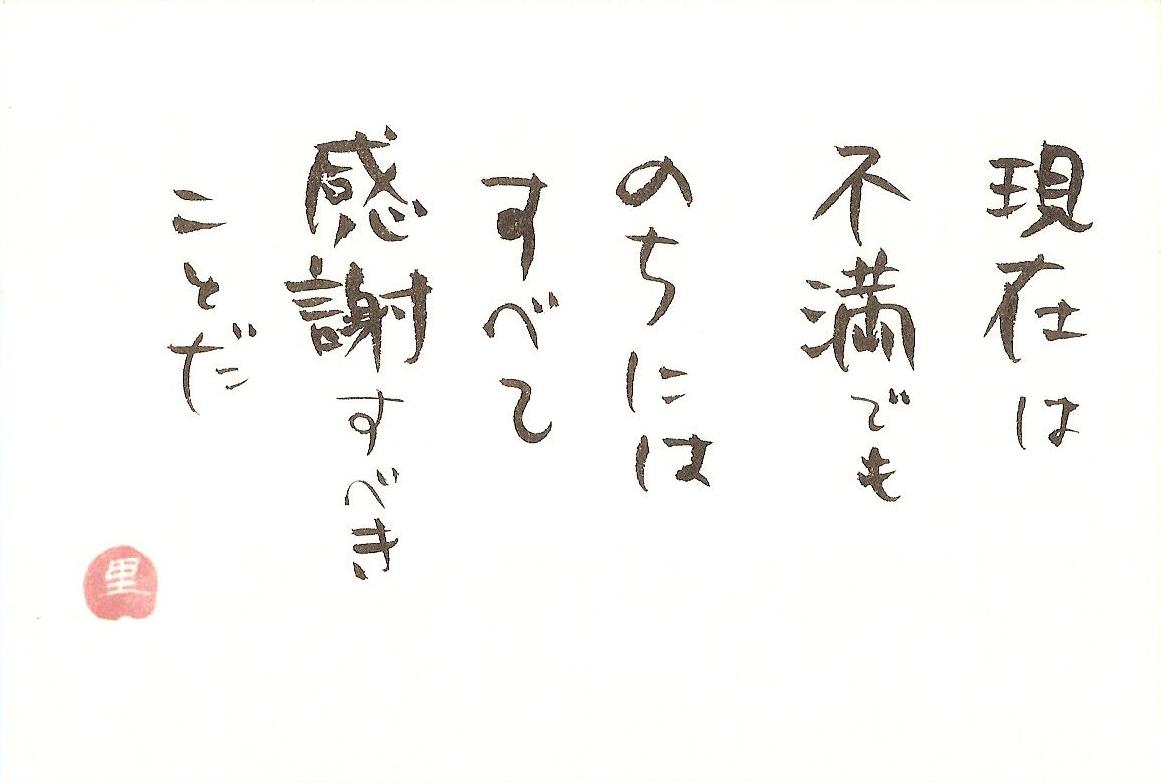 現在は
不満でも
のちには
すべて
感謝すべき
ことだ
里